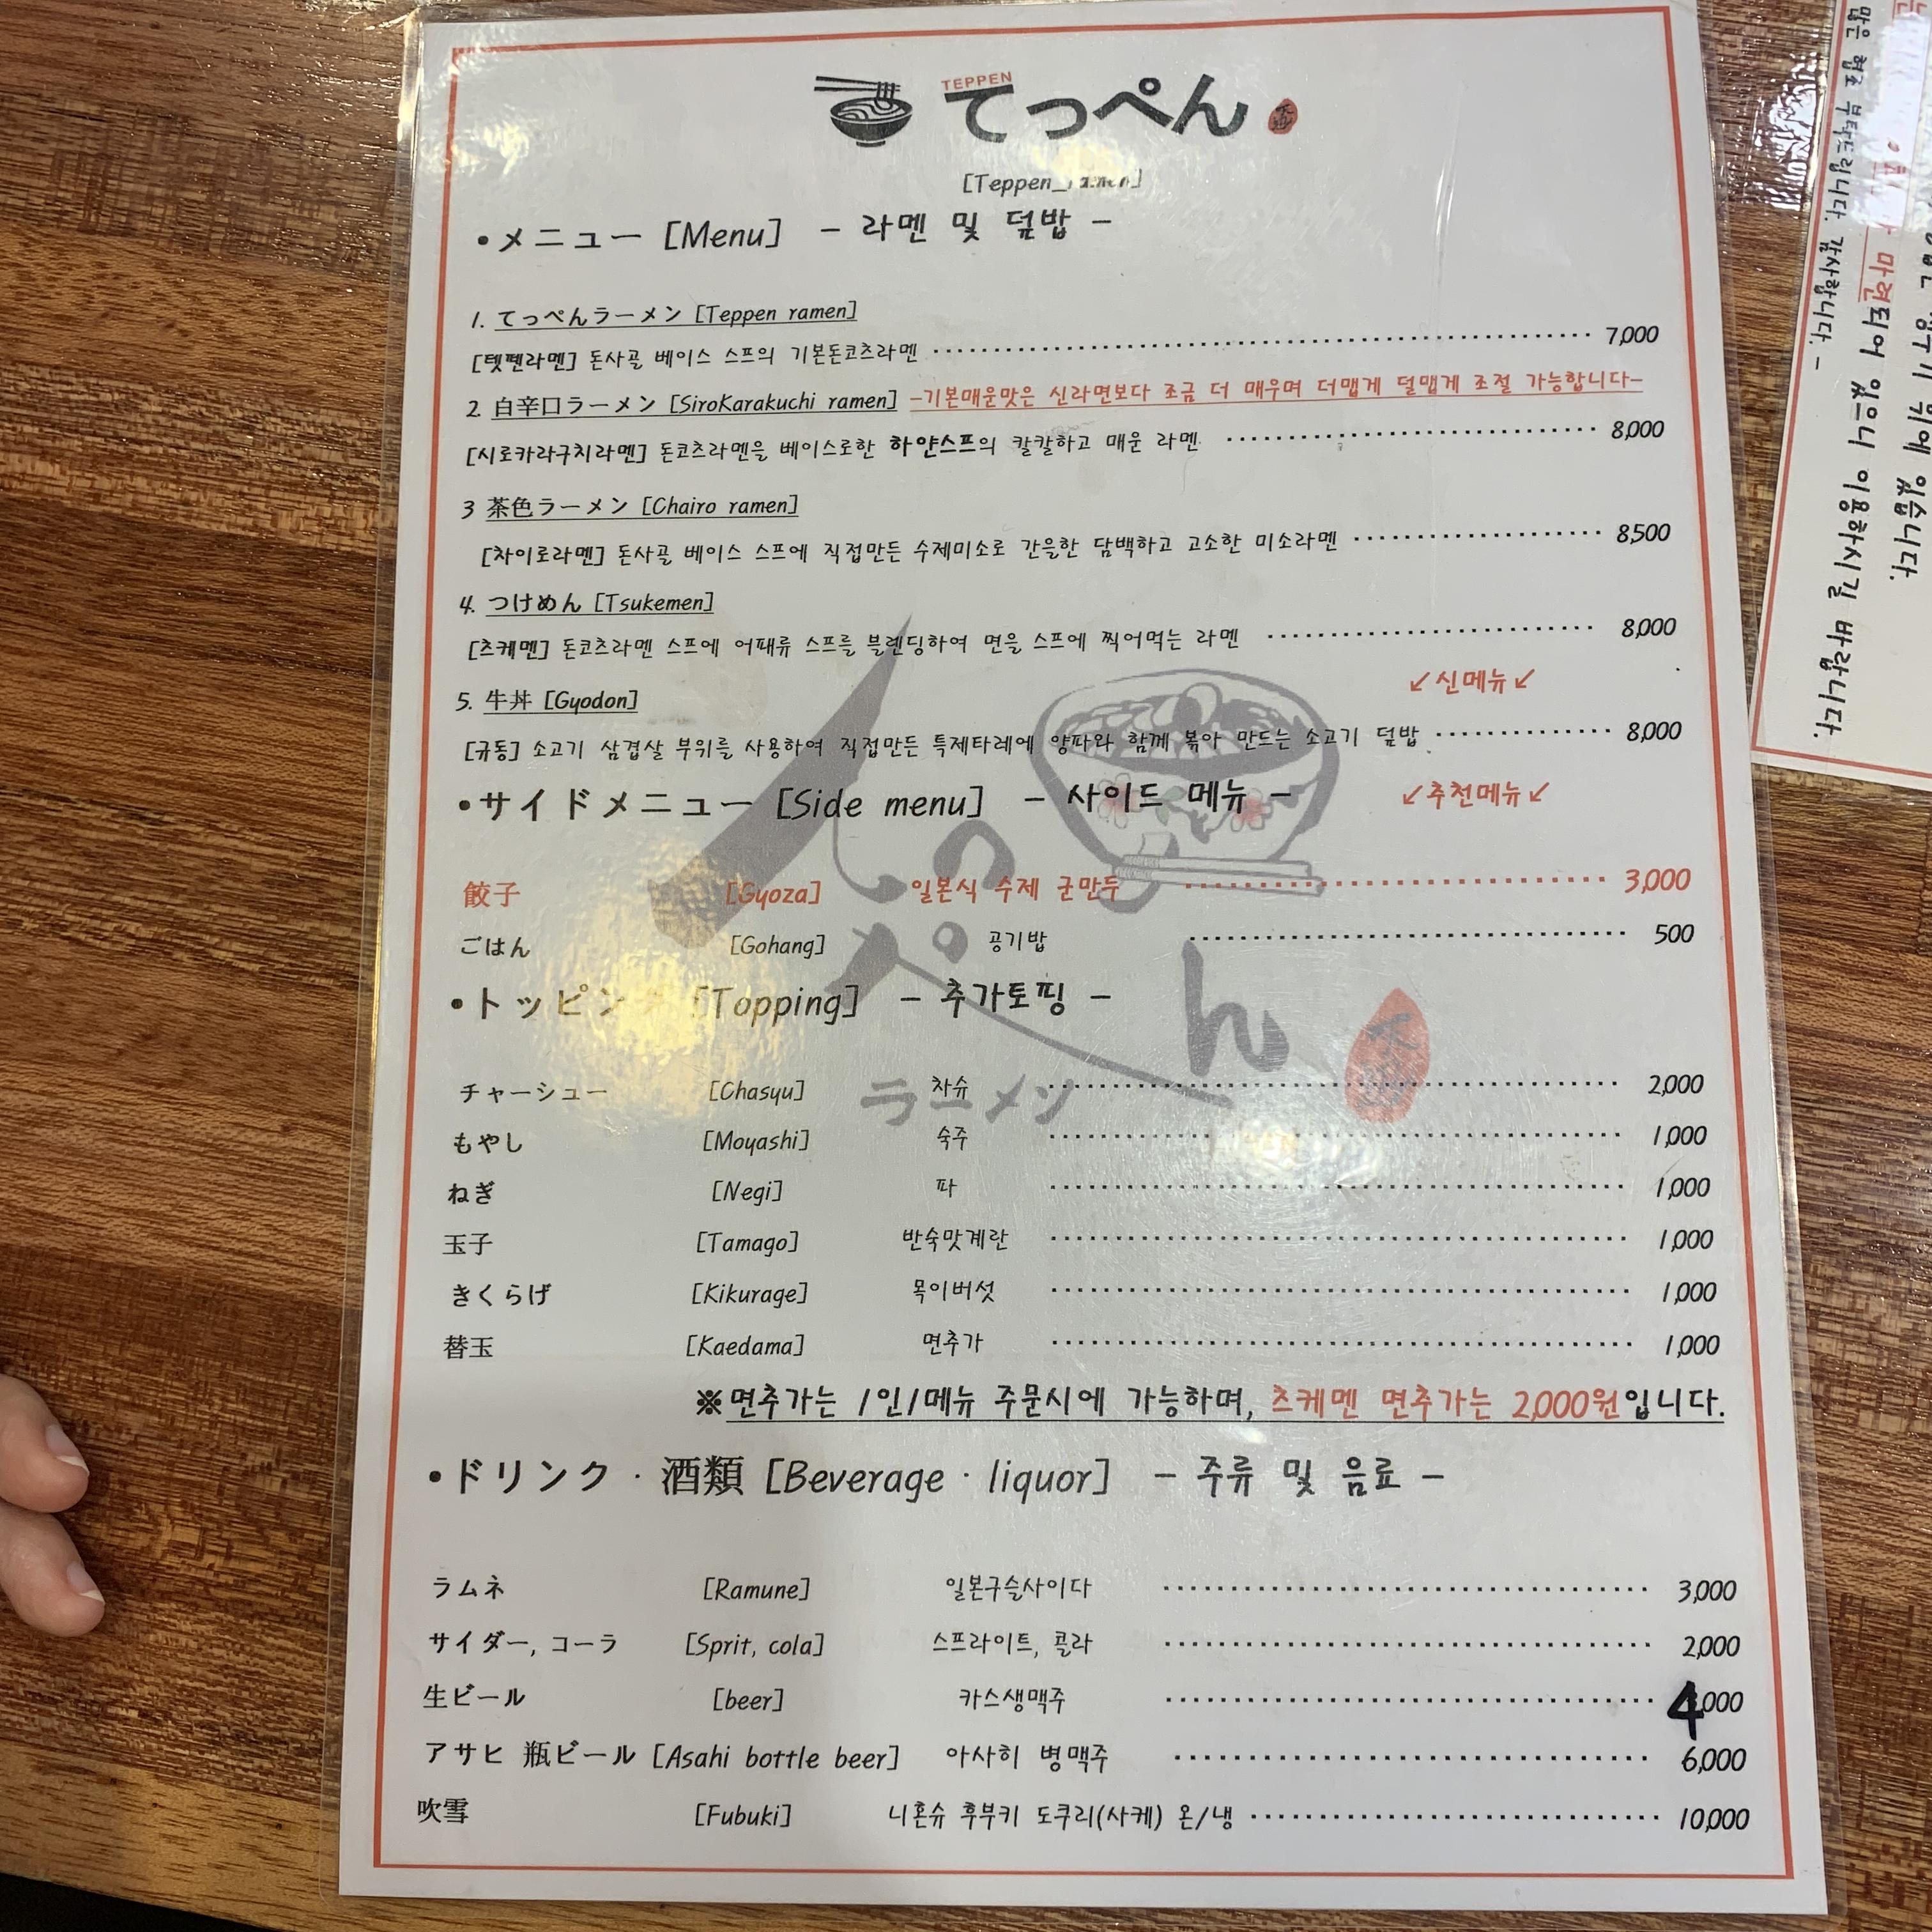 TEPPEN
てっぺん
[Teppen_ramen]
•メニュー [Menu] - 라멘 및 덮밥 -
1. てっぺんラーメン [Teppen ramen]
[텟펜라멘] 돈사골 베이스 스프의 기본돈코츠라멘 7,000
2. 白辛口ラーメン [SiroKarakuchi ramen] -기본매운맛은 신라면보다 조금 더 매우며 더맵게 덜맵게 조절 가능합니다-
[시로카라구치라멘] 돈코츠라멘을 베이스로한 하얀스프의 칼칼하고 매운 라멘 8,000
3 茶色ラーメン [Chairo ramen]
[차이로라멘] 돈사골 베이스 스프에 직접만든 수제미소로 간을한 담백하고 고소한 미소라멘 8,500
4. つけめん [Tsukemen]
[츠케멘] 돈코츠라멘 스프에 어패류 스프를 블렌딩하여 면을 스프에 찍어먹는 라멘 8,000
↙신메뉴↙
5. 牛丼 [Gyodon]
[규동] 소고기 삼겹살 부위를 사용하여 직접만든 특제타레에 양파와 함께 볶아 만드는 소고기 덮밥 8,000
•サイドメニュー [Side menu] - 사이드 메뉴 - ↙추천메뉴↙
餃子 [Gyoza] 일본식 수제 군만두 3,000
ごはん [Gohang] 공기밥 500
•トッピング [Topping] - 추가토핑 -
チャーシュー [Chasyu] 차슈 2,000
もやし [Moyashi] 숙주 1,000
ねぎ [Negi] 파 1,000
玉子 [Tamago] 반숙맛계란 1,000
きくらげ [Kikurage] 목이버섯 1,000
替玉 [Kaedama] 면추가 1,000
※면추가는 1인1메뉴 주문시에 가능하며, 츠케멘 면추가는 2,000원입니다.
•ドリンク · 酒類 [Beverage · liquor] - 주류 및 음료 -
ラムネ [Ramune] 일본구슬사이다 3,000
サイダー, コーラ [Sprit, cola] 스프라이트, 콜라 2,000
生ビール [beer] 카스생맥주 4,000
アサヒ 瓶ビール [Asahi bottle beer] 아사히 병맥주 6,000
吹雪 [Fubuki] 니혼슈 후부키 도쿠리(사케) 온/냉 10,000
てっぺん
ラーメン
위에 있습니다.
마련되어 있으니 이용하시길 바랍니다.
많은 협조 부탁드립니다. 감사합니다. -